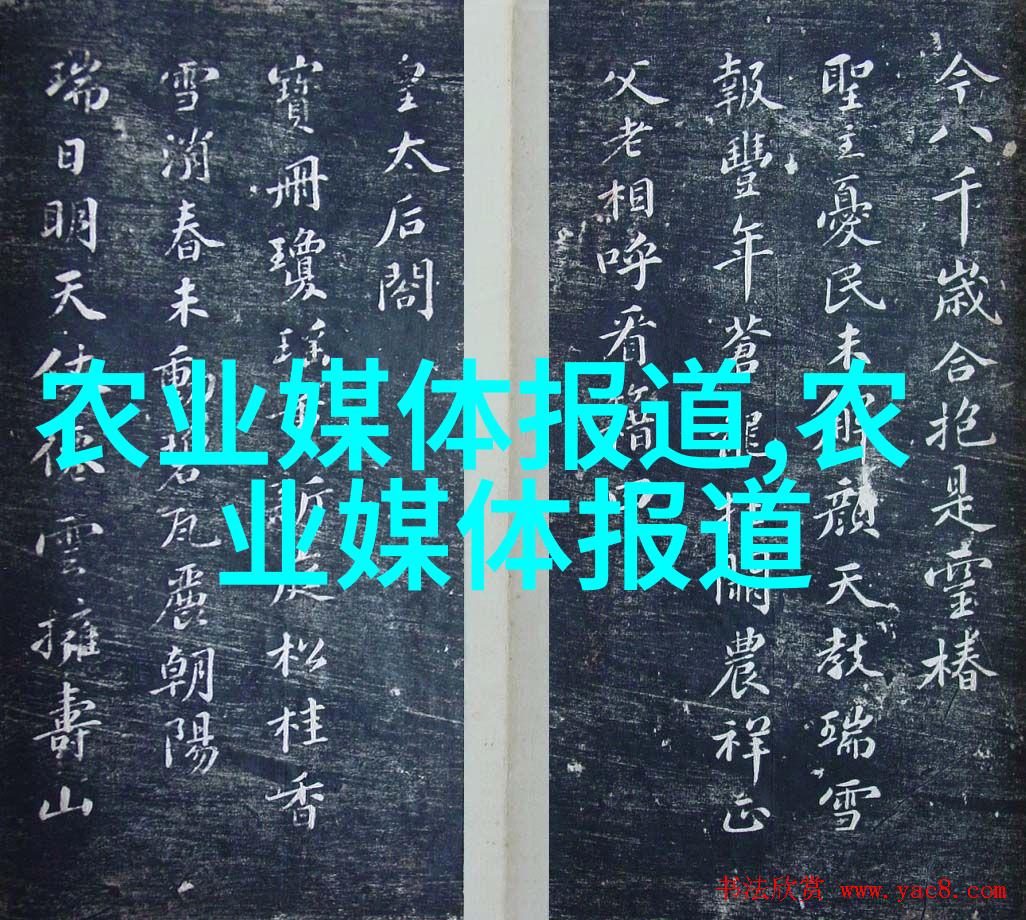 今八千歲合抱是靈椿
聖主憂民未解顏天教瑞雪
報豐年蒼龍農祥正
父老相呼看
皇太后閣
寶冊瓊瑤松桂香
雪消春未動碧瓦麗朝陽
瑞日明天雲擁壽山
农业媒体报道,农
业媒体报道
书法欣赏 www.yac8.com